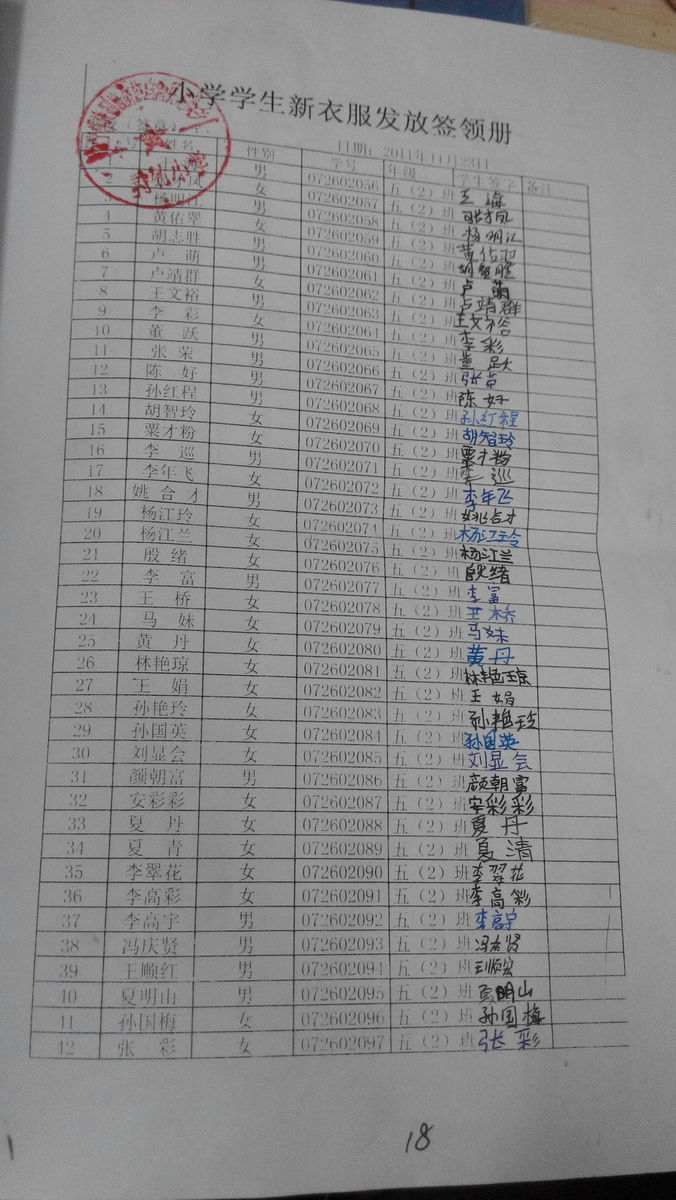 小学学生新衣服发放签领册
日期：2011年11月23日
姓名 性别 学号 年级 学生签字 备注
男 072602056 五（2）班 王海
女 072602057 五（2）班
3 杨明江 男 072602058 五（2）班 杨明江
4 黄佑翠 女 072602059 五（2）班 黄佑翠
5 胡志胜 男 072602060 五（2）班 胡智胜
6 卢萌 女 072602061 五（2）班 卢萌
7 卢靖群 女 072602062 五（2）班 卢靖群
8 王文裕 男 072602063 五（2）班 王文裕
9 李彩 女 072602064 五（2）班 李彩
10 董跃 男 072602065 五（2）班 董跃
11 张荣 男 072602066 五（2）班 张荣
12 陈好 女 072602067 五（2）班 陈好
13 孙红程 男 072602068 五（2）班 孙红程
14 胡智玲 女 072602069 五（2）班 胡智玲
15 粟才粉 女 072602070 五（2）班 粟才粉
16 李巡 男 072602071 五（2）班 李巡
17 李年飞 女 072602072 五（2）班 李年飞
18 姚合才 男 072602073 五（2）班 姚合才
19 杨江玲 女 072602074 五（2）班 杨江玲
20 杨江兰 女 072602075 五（2）班 杨江兰
21 殷绪 女 072602076 五（2）班 殷绪
22 李富 男 072602077 五（2）班 李富
23 王桥 女 072602078 五（2）班 王桥
24 马妹 女 072602079 五（2）班 马妹
25 黄丹 女 072602080 五（2）班 黄丹
26 林艳琼 女 072602081 五（2）班 林艳琼
27 王娟 女 072602082 五（2）班 王娟
28 孙艳玲 女 072602083 五（2）班 孙艳玲
29 孙国英 女 072602084 五（2）班 孙国英
30 刘显会 女 072602085 五（2）班 刘显会
31 颜朝富 男 072602086 五（2）班 颜朝富
32 安彩彩 女 072602087 五（2）班 安彩彩
33 夏丹 女 072602088 五（2）班 夏丹
34 夏青 女 072602089 五（2）班 夏清
35 李翠花 女 072602090 五（2）班 李翠花
36 李高彩 女 072602091 五（2）班 李高彩
37 李高宇 男 072602092 五（2）班 李高宇
38 冯庆贤 男 072602093 五（2）班 冯庆贤
39 王顺红 男 072602094 五（2）班 王顺宏
40 夏明山 男 072602095 五（2）班 夏明山
41 孙国梅 女 072602096 五（2）班 孙国梅
42 张彩 女 072602097 五（2）班 张彩
18